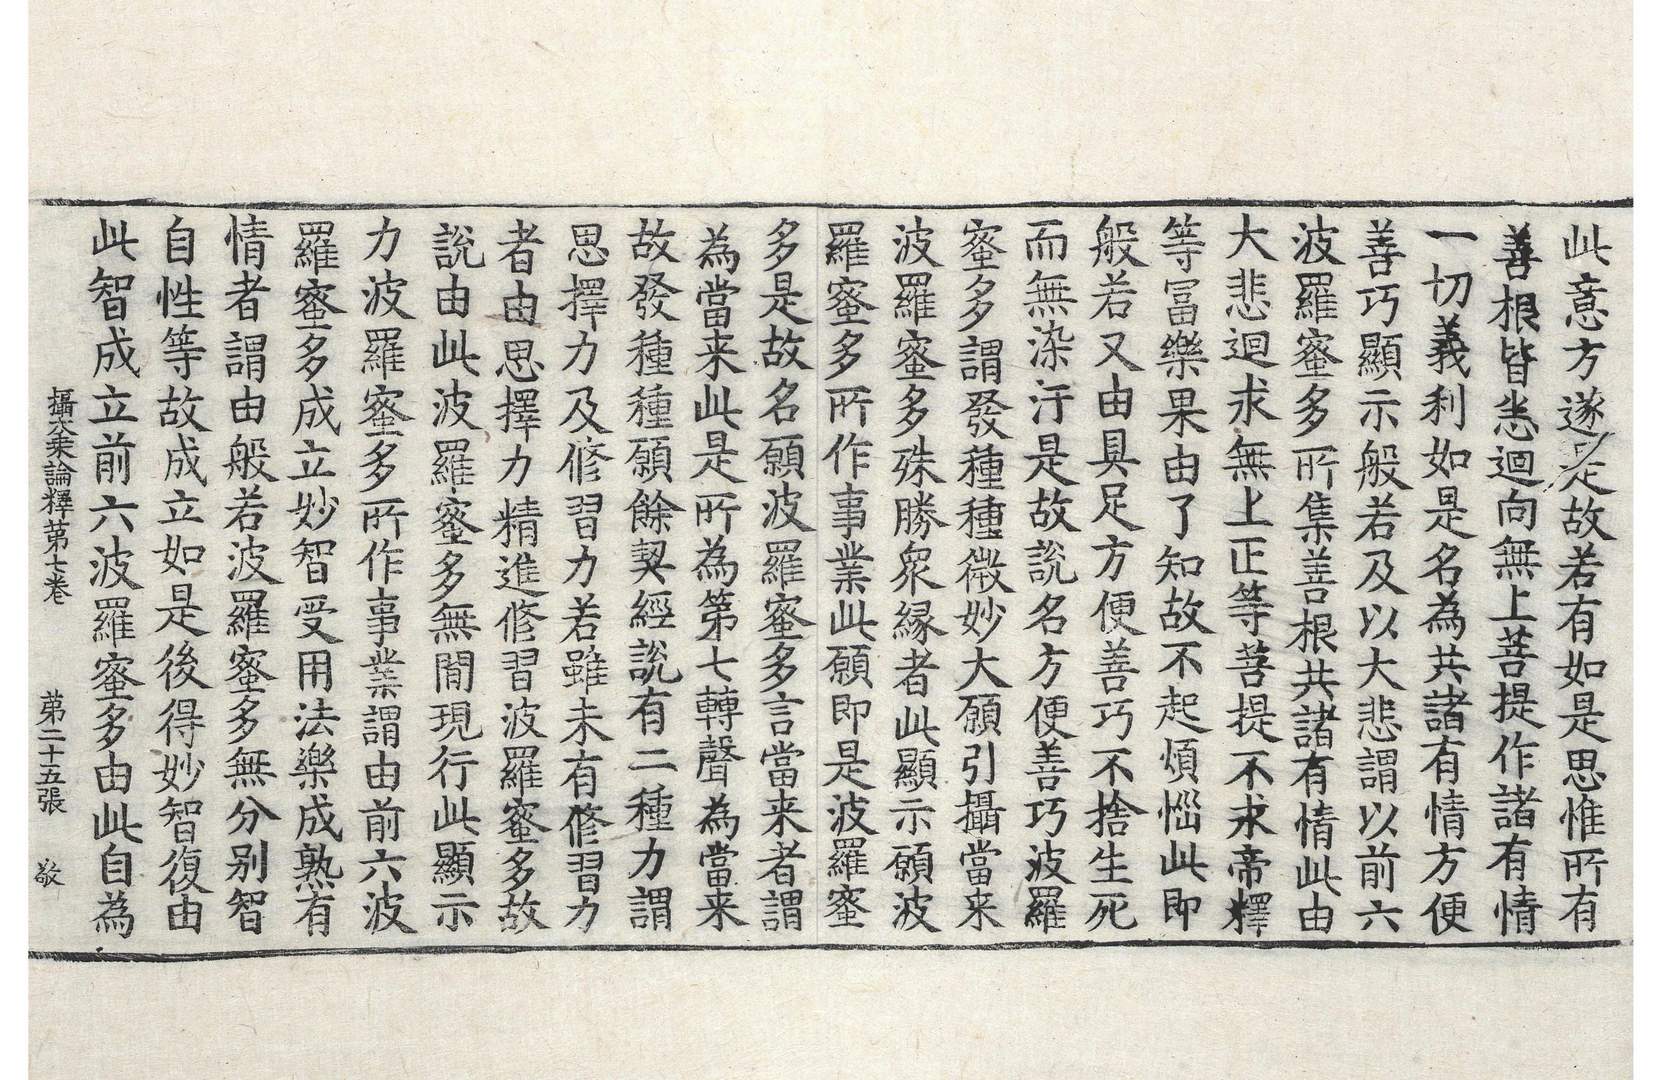 此意方遂是故若有如是思惟所有
善根皆悉迴向無上菩提作諸有情
一切義利如是名為共諸有情方便
善巧顯示般若及以大悲謂以前六
波羅蜜多所集善根共諸有情此由
大悲迴求無上正等菩提不求帝釋
等冨樂果由了知故不起煩惱此即
般若又由具足方便善巧不捨生死
而無染汙是故說名方便善巧波羅
蜜多謂發種種微妙大願引攝當来
波羅蜜多殊勝衆縁者此顯示願波
羅蜜多所作事業此願即是波羅蜜
多是故名願波羅蜜多言當来者謂
為當来此是所為第七轉聲為當来
故發種種願餘契經說有二種力謂
思擇力及修習力若雖未有修習力
者由思擇力精進修習波羅蜜多故
說由此波羅蜜多無間現行此顯示
力波羅蜜多所作事業謂由前六波
羅蜜多成立妙智受用法樂成熟有
情者謂由般若波羅蜜多無分别智
自性等故成立如是後得妙智復由
此智成立前六波羅蜜多由此自為
攝大乘論釋第七卷　第二十五張　敬